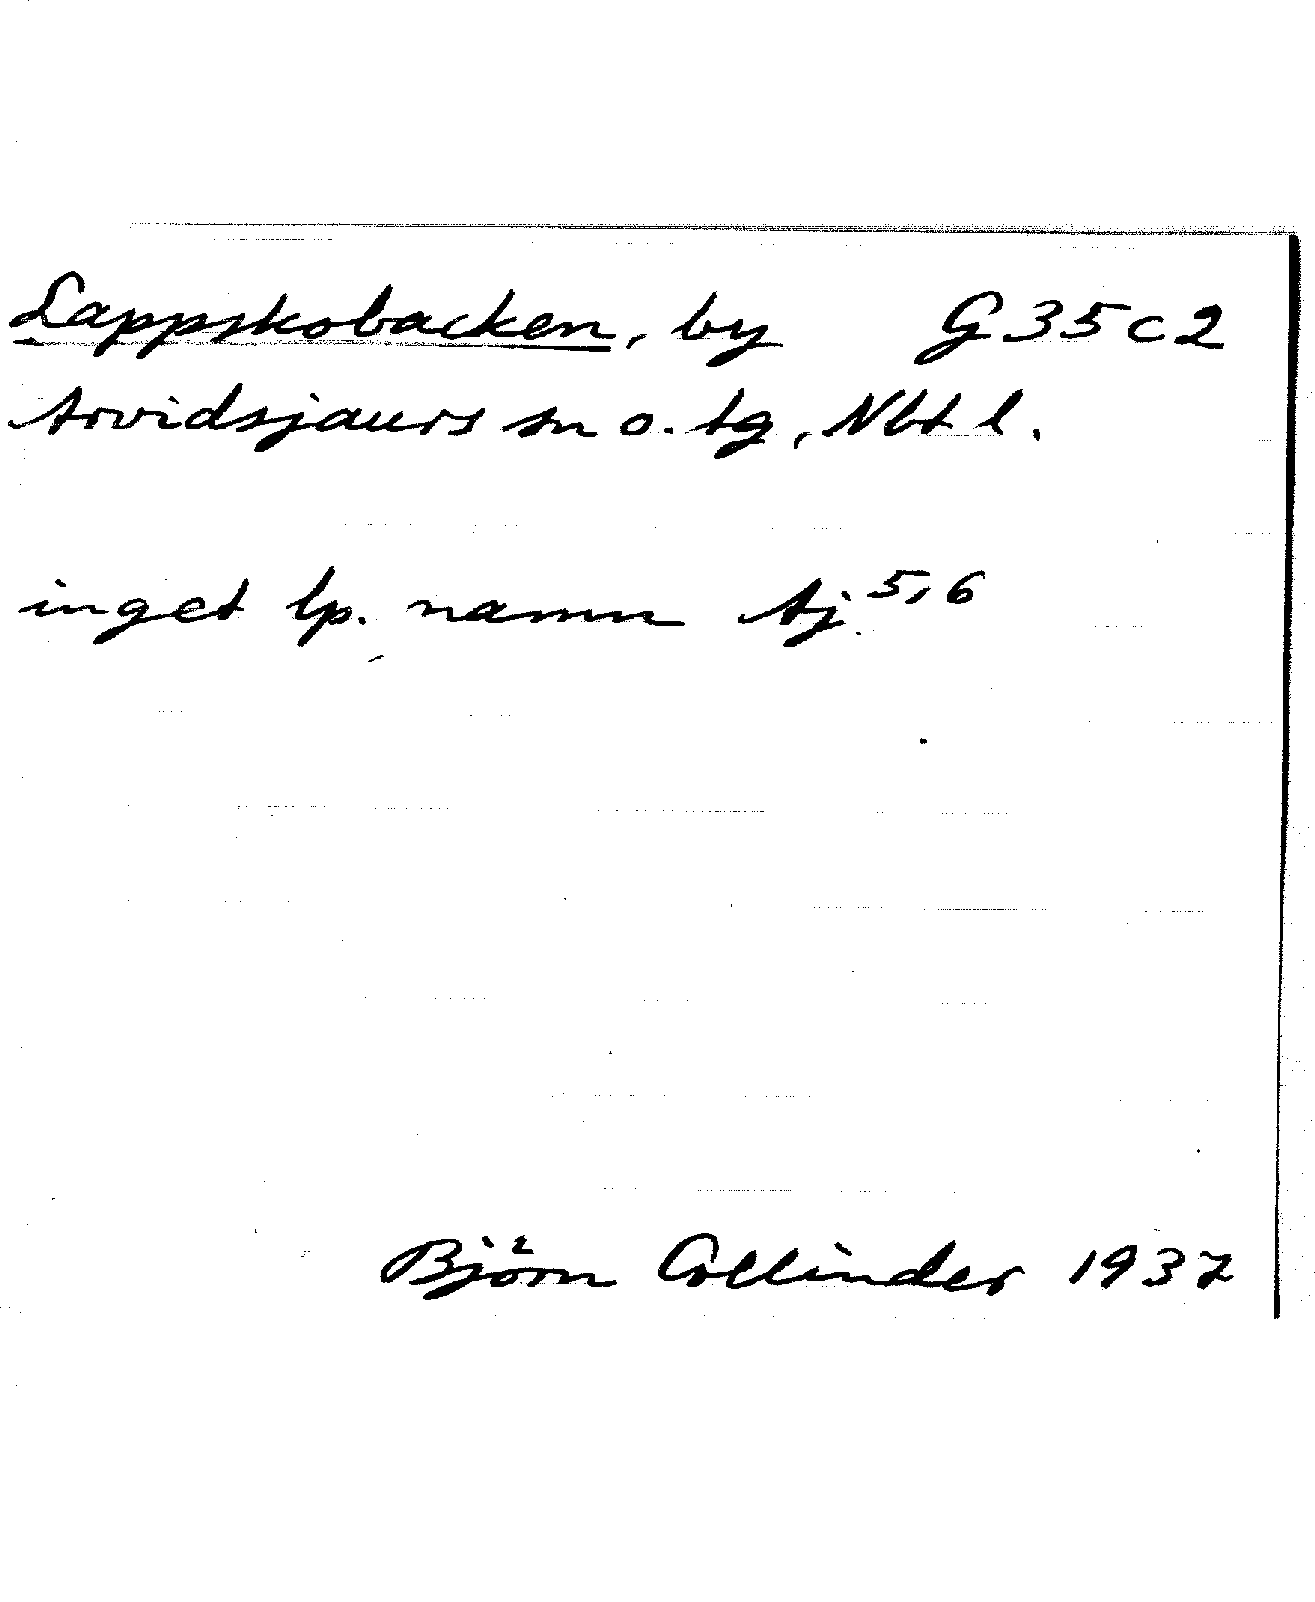 Lappskobacken, by G 35 c 2
Arvidsjaurs sn o. tg, Nbt l.
inget lp. namn Aj 5,6
Björn Collinder 1937